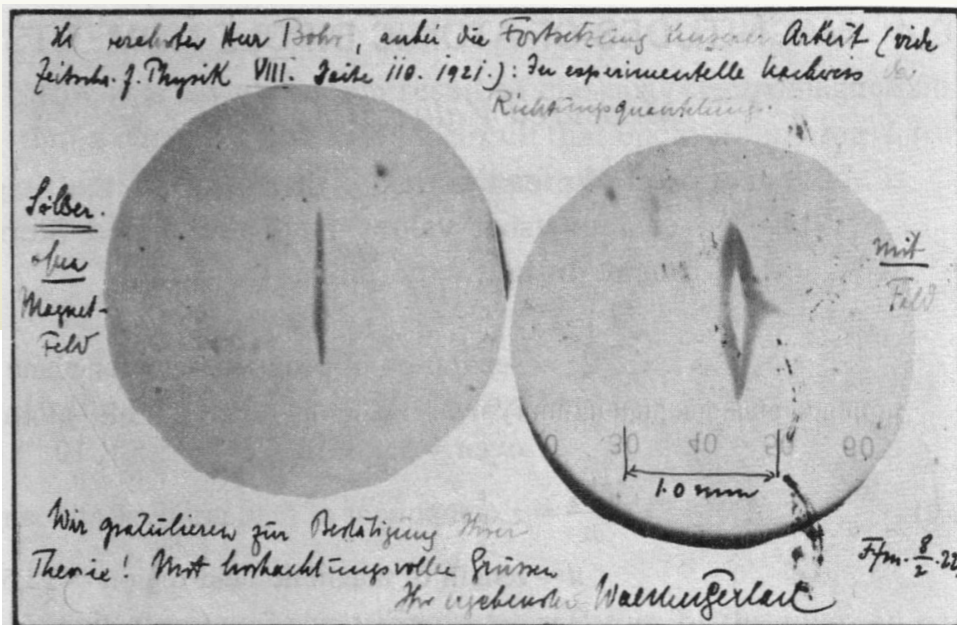 verehrter Herr Bohr, anbei die Fortsetzung unserer Arbeit (vide
Zeitschr. f. Physik VIII. Seite 110. 1921.): Der experimentelle Nachweis der
Richtungsquantelung.
Silber
ohne
Magnet-
Feld
mit
Feld
0 30 40 50 60
1.0 mm
Wir gratulieren zur Bestätigung Ihrer
Theorie! Mit hochachtungsvollen Grüssen
Ihr ergebenster Walther Gerlach
Ffm. 8/2. 22.